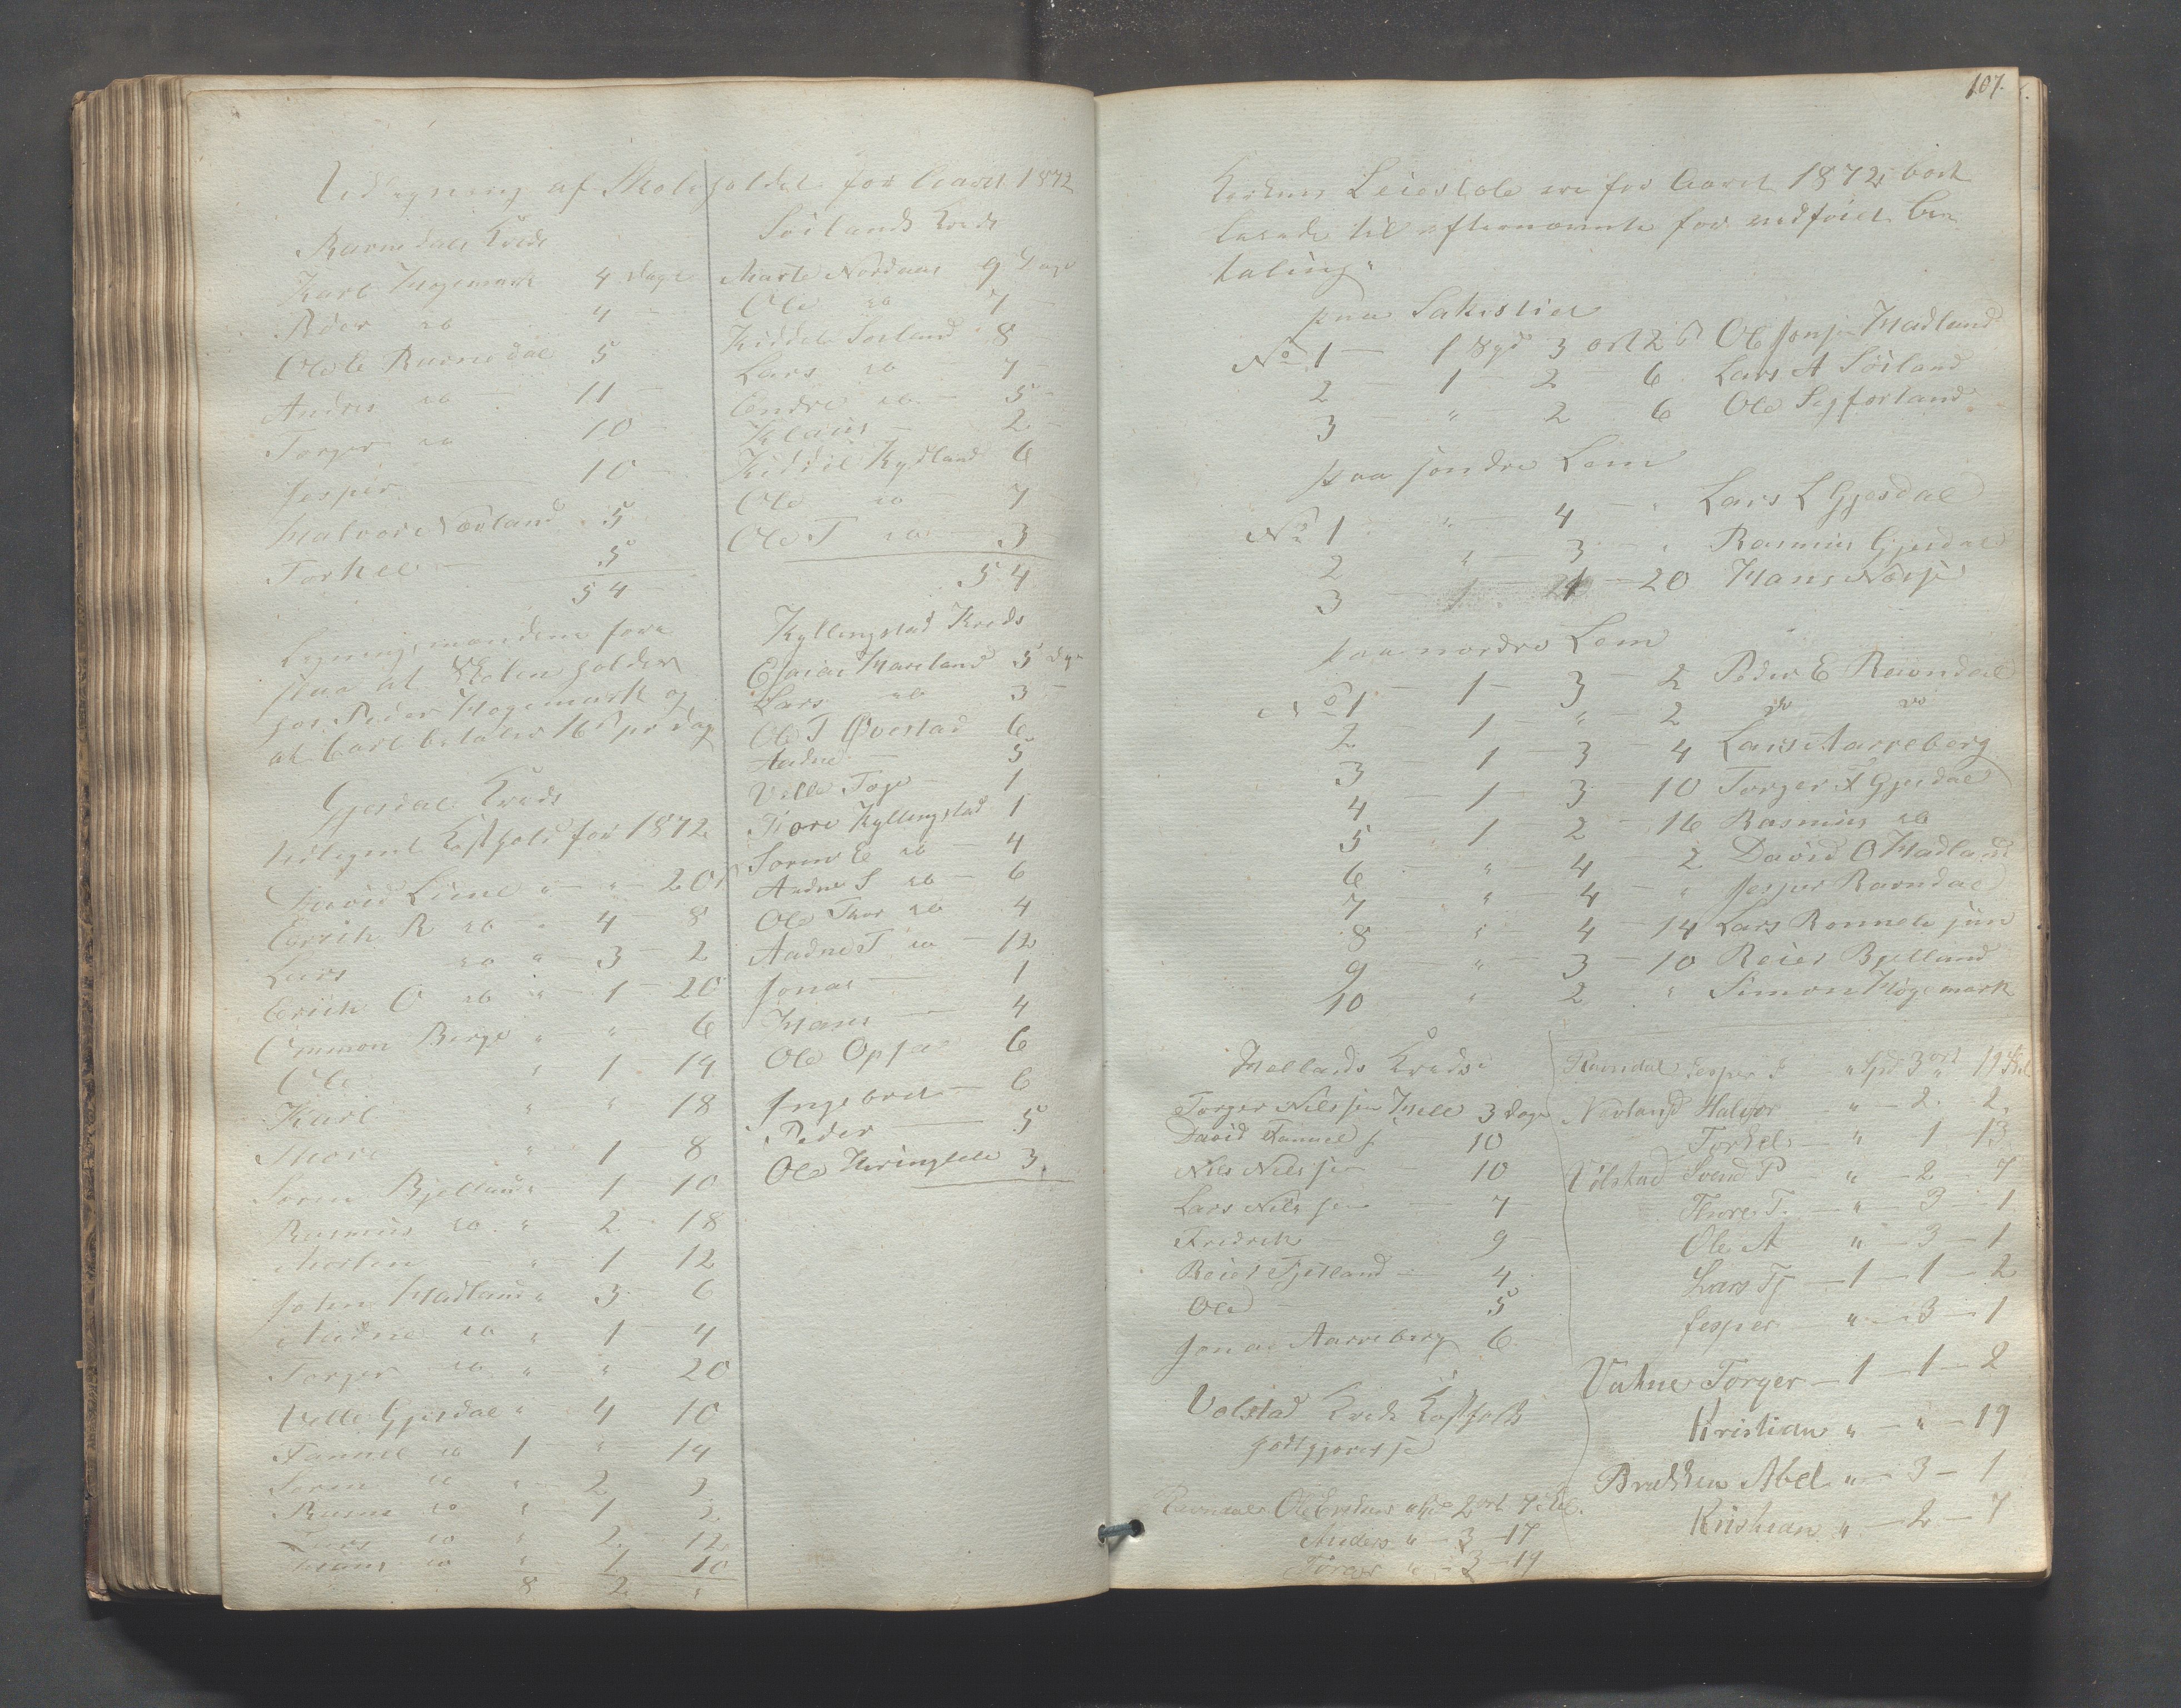 Udligning af Skoleholdet for Aaret 1872
Ravndals Kreds
Karl Høgemark 4 Dage
Peder do 4 —
Ole E Ravndal 5
Andres do — 11 —
Torger do 10 —
Jesper — 10 —
Halvor Nævland 5
Torkel — 5
54
Ligningsmændene fore
slaar at Skolen holdes
hos Peder Høgemark og
at Carl betaler 16 ß pr Dag
Gjesdal Kreds
Udlignet Kosthold for 1872
David Lime " — " — 20 ß
Eerik R do " 4 — 8
Lars do " — 3 — 2
Erich O do " — 1 — 20
Ommon Berge " — " — 6
Ole " 1 — 14
Karl " " 18
Thore " 1 8
Soren Bjelland " 1 — 10
Rasmus do " 2 — 18
Morten — " — 1 — 12
John Madland " 3 — 6
Audne do " 1 — 4
Torger do " " 20
Velle Gjesdal " 4 10
Tønnes do 1 — " — 14
Soren do " 2
Rasm do " 1 2
Lars do " 2 12
Hans do " 1 10
8 2 "
Söilands Kreds
Marte Nordaas 9 Dage
Ole do 7 —
Kiddel Soiland 8 —
Lars do 7 —
Endre do — 5 —
Klaus — 2 —
Kiddil Kydland 6
Ole do — 7 —
Ole T do — 3
54
Kyllingstad Kreds
Esaias Haaeland 5 Dge
Lars do 3 —
Ole T Øvestad 6
Audne — 5
Velle Toge — 1
Thore Kyllingstad 1
Soren E do — 4
Audne S do — 6
Ole Thor do 4
Audne T do — 12
Jonas — 1
Hans — 4
Ole Opsa 6
Ingebret — 6
Peder — 5
Ole Kringlele 3
107.
Kirkens Leiestole ere for Aaret 1872 bort
leiede til efternævnte for vedføiet Be
taling"
paa Sakristiet
No 1 — 1 Spd 3 ort 2 ß Ole Jonsen Madland
2 — 1 — 2 — 6 Lars A Söiland
3 — " — 2 — 6 Ole Sejforland
paa søndre Lem
No 1 " — 4 — " Lars L Gjesdal
2 " — 3 — " Rasmus Gjesdal
3 — 1 — 1 — 20 Hans Næsse
paa nordre Lem
No 1 — 1 — 3 — 2 Peder E Ravndal
2 1 — " — 2 do do
3 — 1 — 3 — 4 Lars Aarreberg
4 — 1 3 — 10 Torger T Gjesdal
5 " 1 2 — 16 Rasmus do
6 — " 4 — 2 David O Madland
7 — " 4 — " Jesper Ravndal
8 " 4 — 14 Lars Rommele jun
9 — " 3 — 10 Reier Bjelland
10 " 2 " Simon Høgemark
Mellands Kreds
Torger Nilssen Mele 3 Dage
David Tønnes s — 10
Nils Nilssen — 10
Lars Nilssen — 7 —
Fredrik — 9 —
Reier Fjetland — 4
Ole — 5
Jonas Aarreberg 6
Volstad Kreds Kosthold
godtgjørelse
Ravndal Ole Eriksen " Spd 2 ort 7 Skl.
Anders " — 3 — 17
Torger " — 3 — 19
Ravndal Jesper J " Spd 3 ort 19 Skl
Nævland Halvor — " — 2. 2.
Torkel — " 1 13
Vølstad Svend P — " — 2 — 7
Thore T. — " — 3 — 1
Ole A " — 3 — 1
Lars Tj — 1 — 1 — 2
Jesper — " — 3 — 1
Vahne Torger — 1 — 1 — 2
Kristian " — " — 19
Brekken Abel " — 3 — 1
Kristian " — 2 — 7